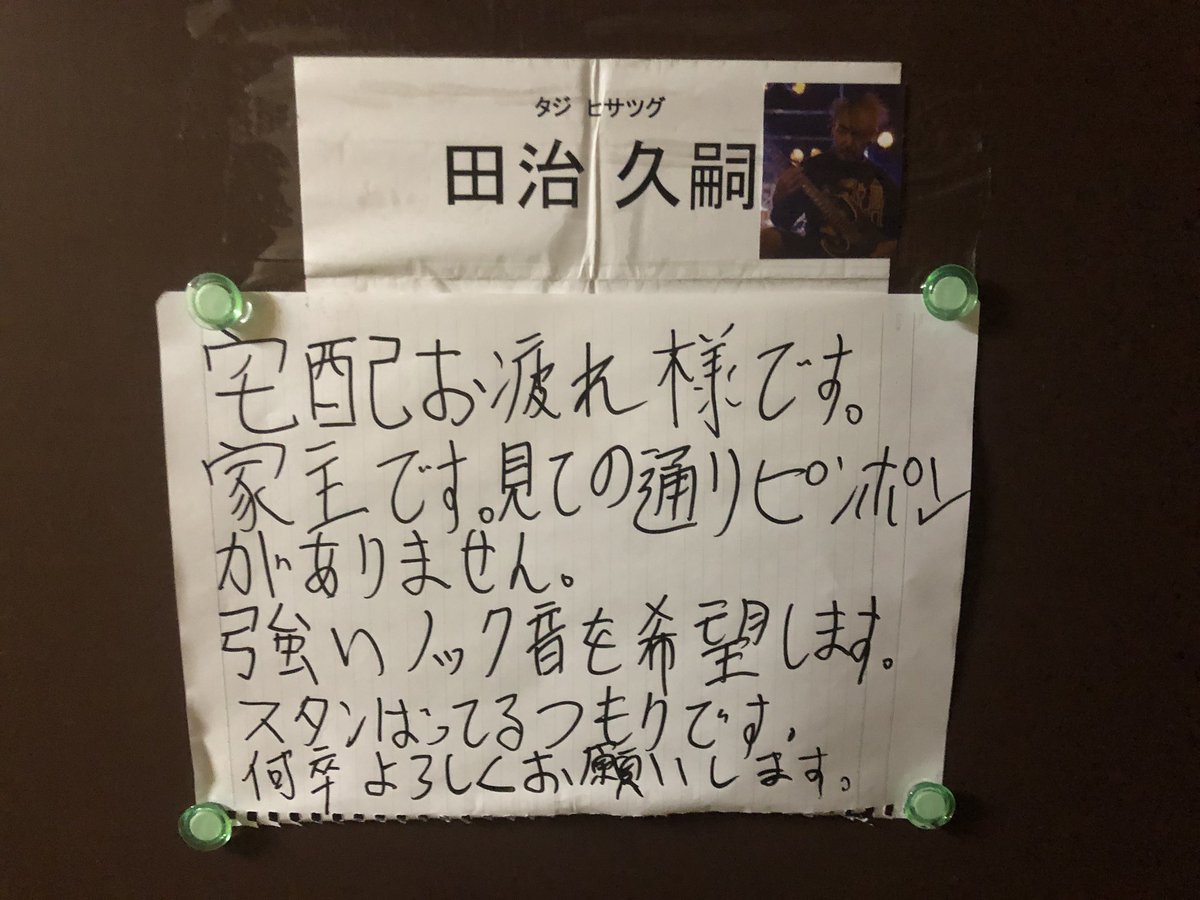 タジ ヒサツグ
田治 久嗣
宅配お疲れ様です。
家主です。見ての通りピンポン
がありません。
強いノック音を希望します。
スタンばってるつもりです.
何卒よろしくお願いします。